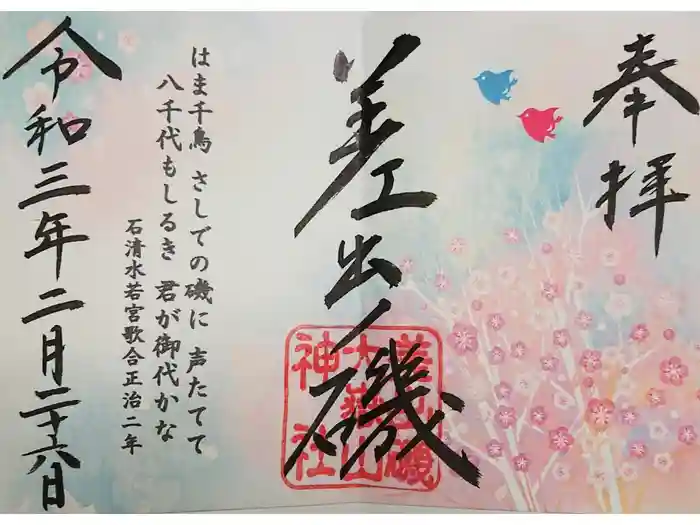 奉拝
差出ノ磯
差出磯
大嶽山
神社
はま千鳥 さしての磯に 声たてて
八千代もしるき 君が御代かな
石清水若宮歌合正治二年
令和三年二月二十六日